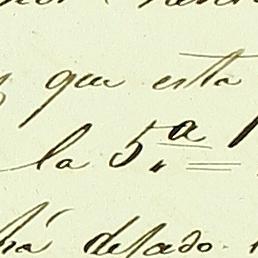 que esta
la 5.ª
há dejado